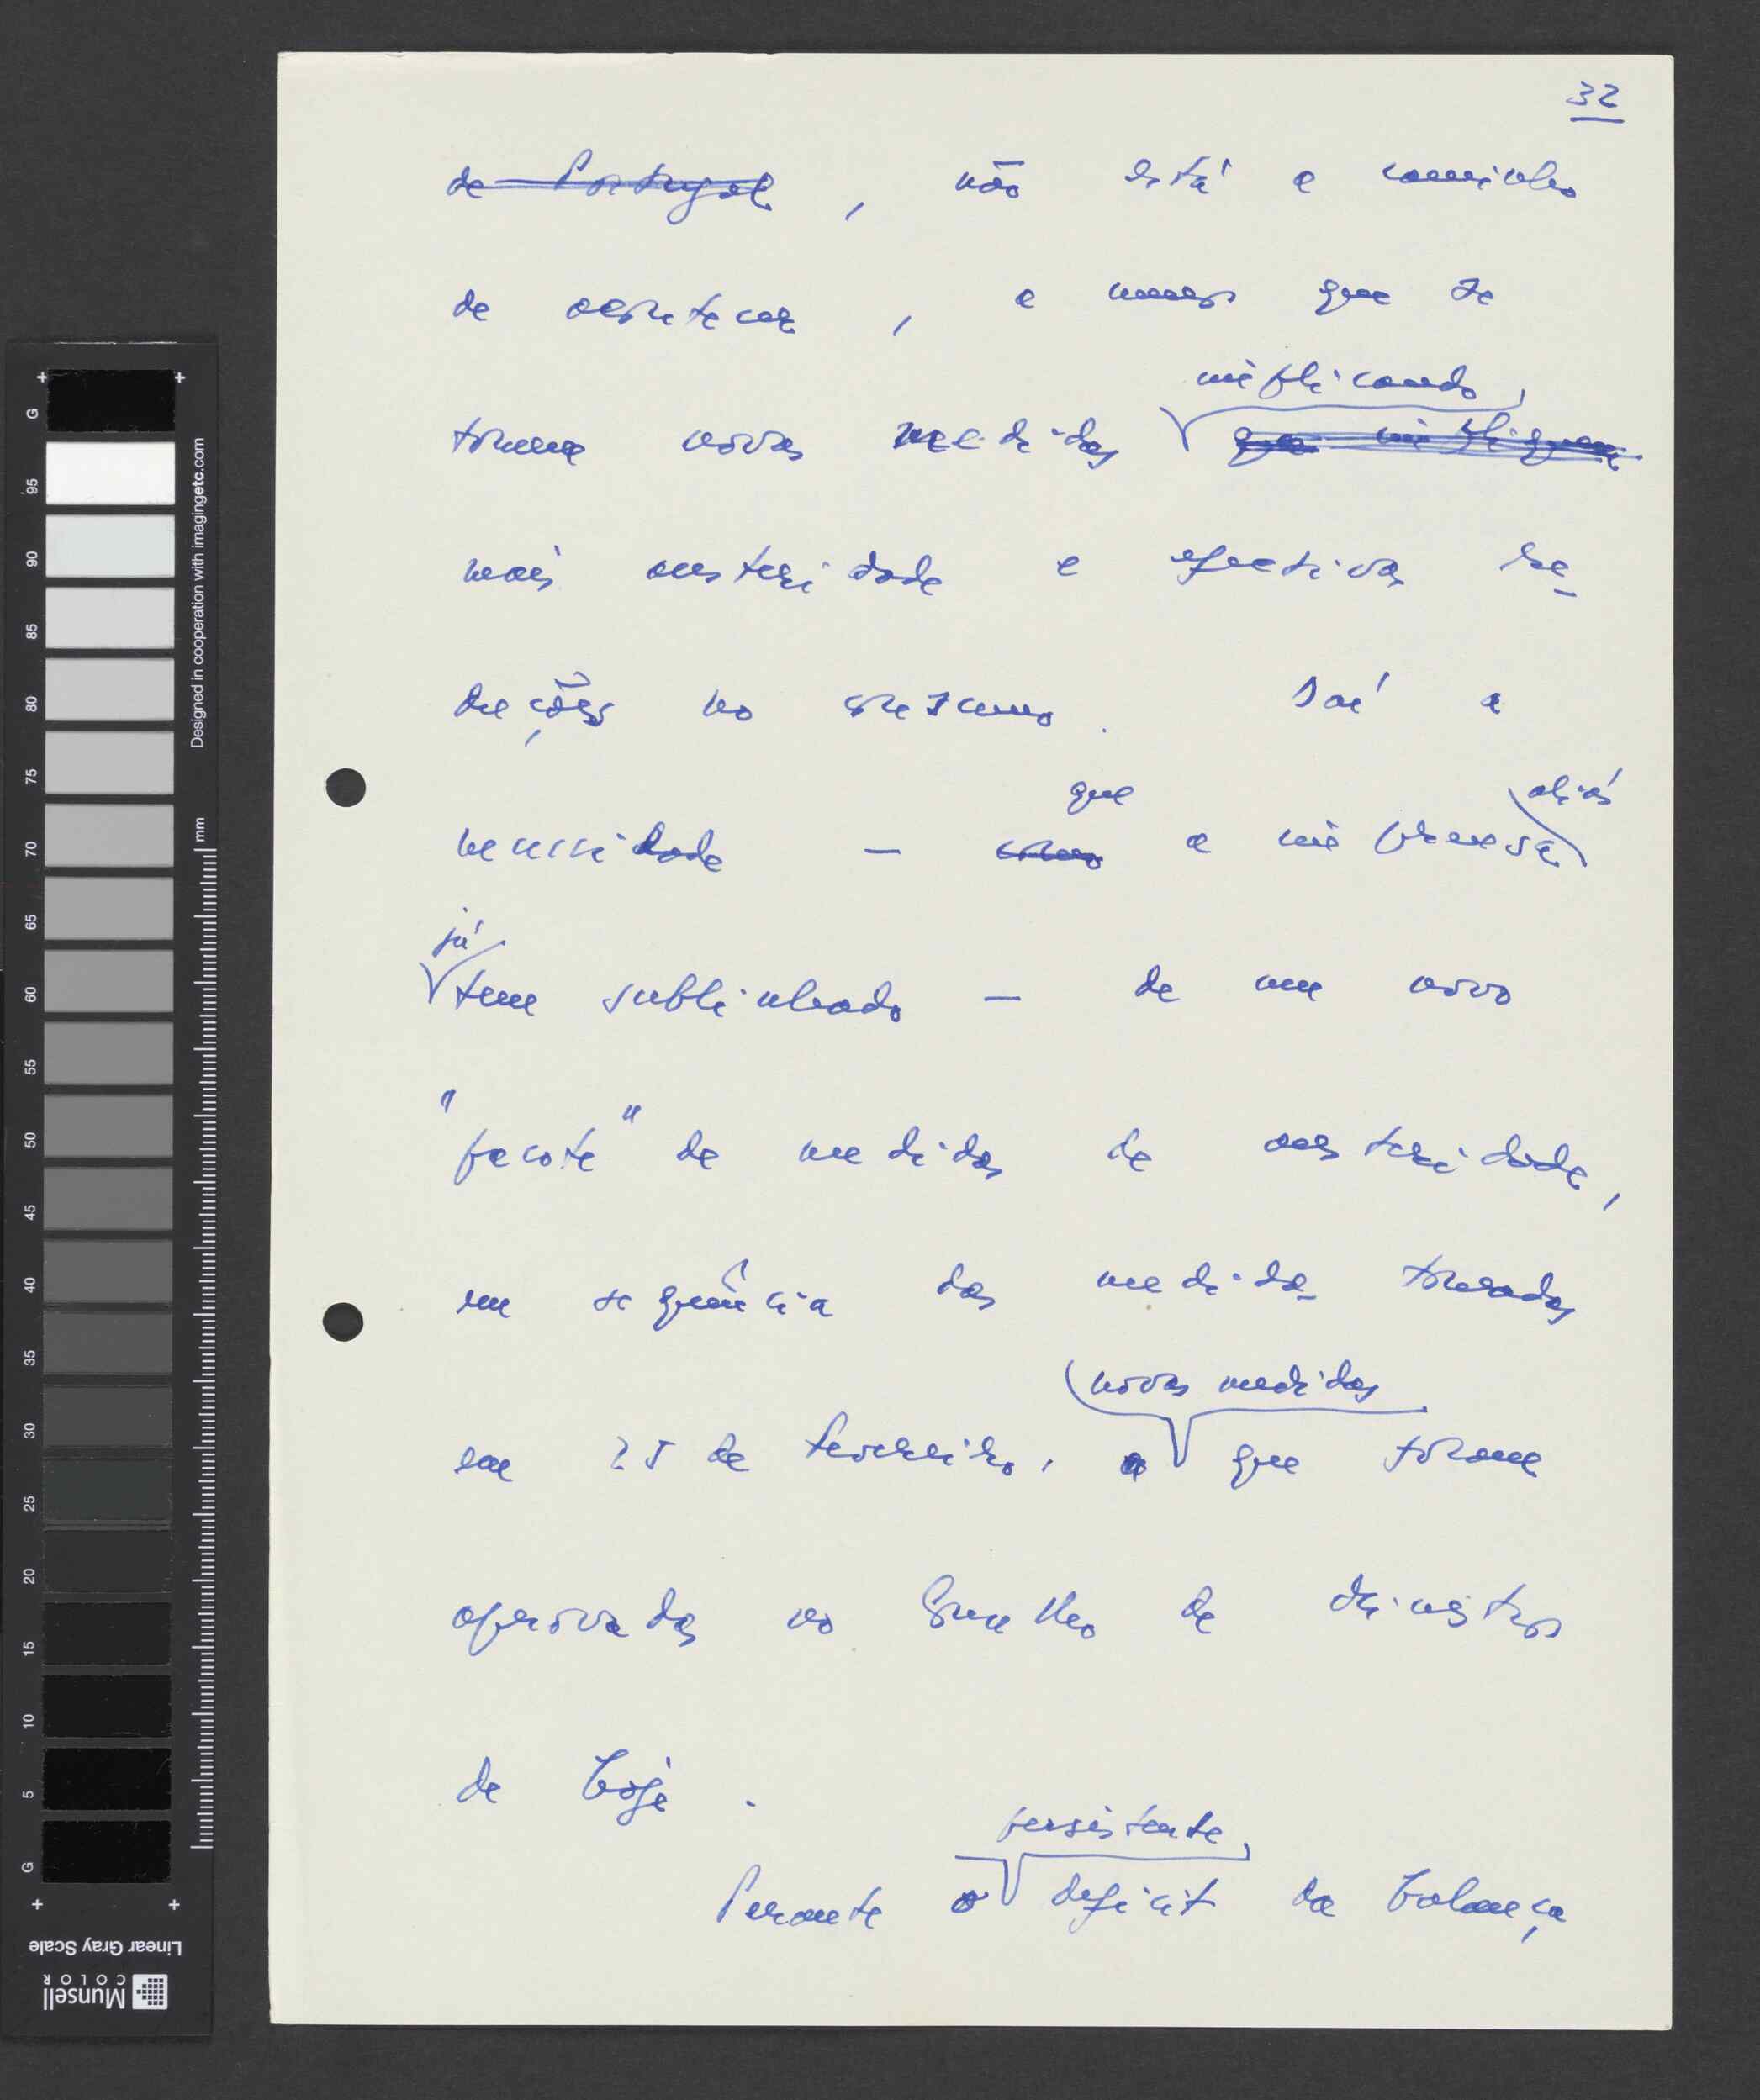 32
de Portugal, não está a caminho
de acontecer, a menos que se
implicando,
tomem novas medidas que impliquem
mais austeridade e efectivas re-
duções no consumo. Daí a
que aliás
necessidade — como a imprensa
já
tem sublinhado — de um novo
"pacote" de medidas de austeridade,
em sequência das medidas tomadas
novas medidas
em 25 de Fevereiro, que foram
aprovadas no Conselho de Ministros
de hoje.
persistente,
Perante o deficit da balança
G 95 90 85 80 75 70 65 60 55 50 45 40 35 30 25 20 15 10 5 G
mm
Designed in cooperation with imagingetc.com
Linear Gray Scale
Munsell
COLOR